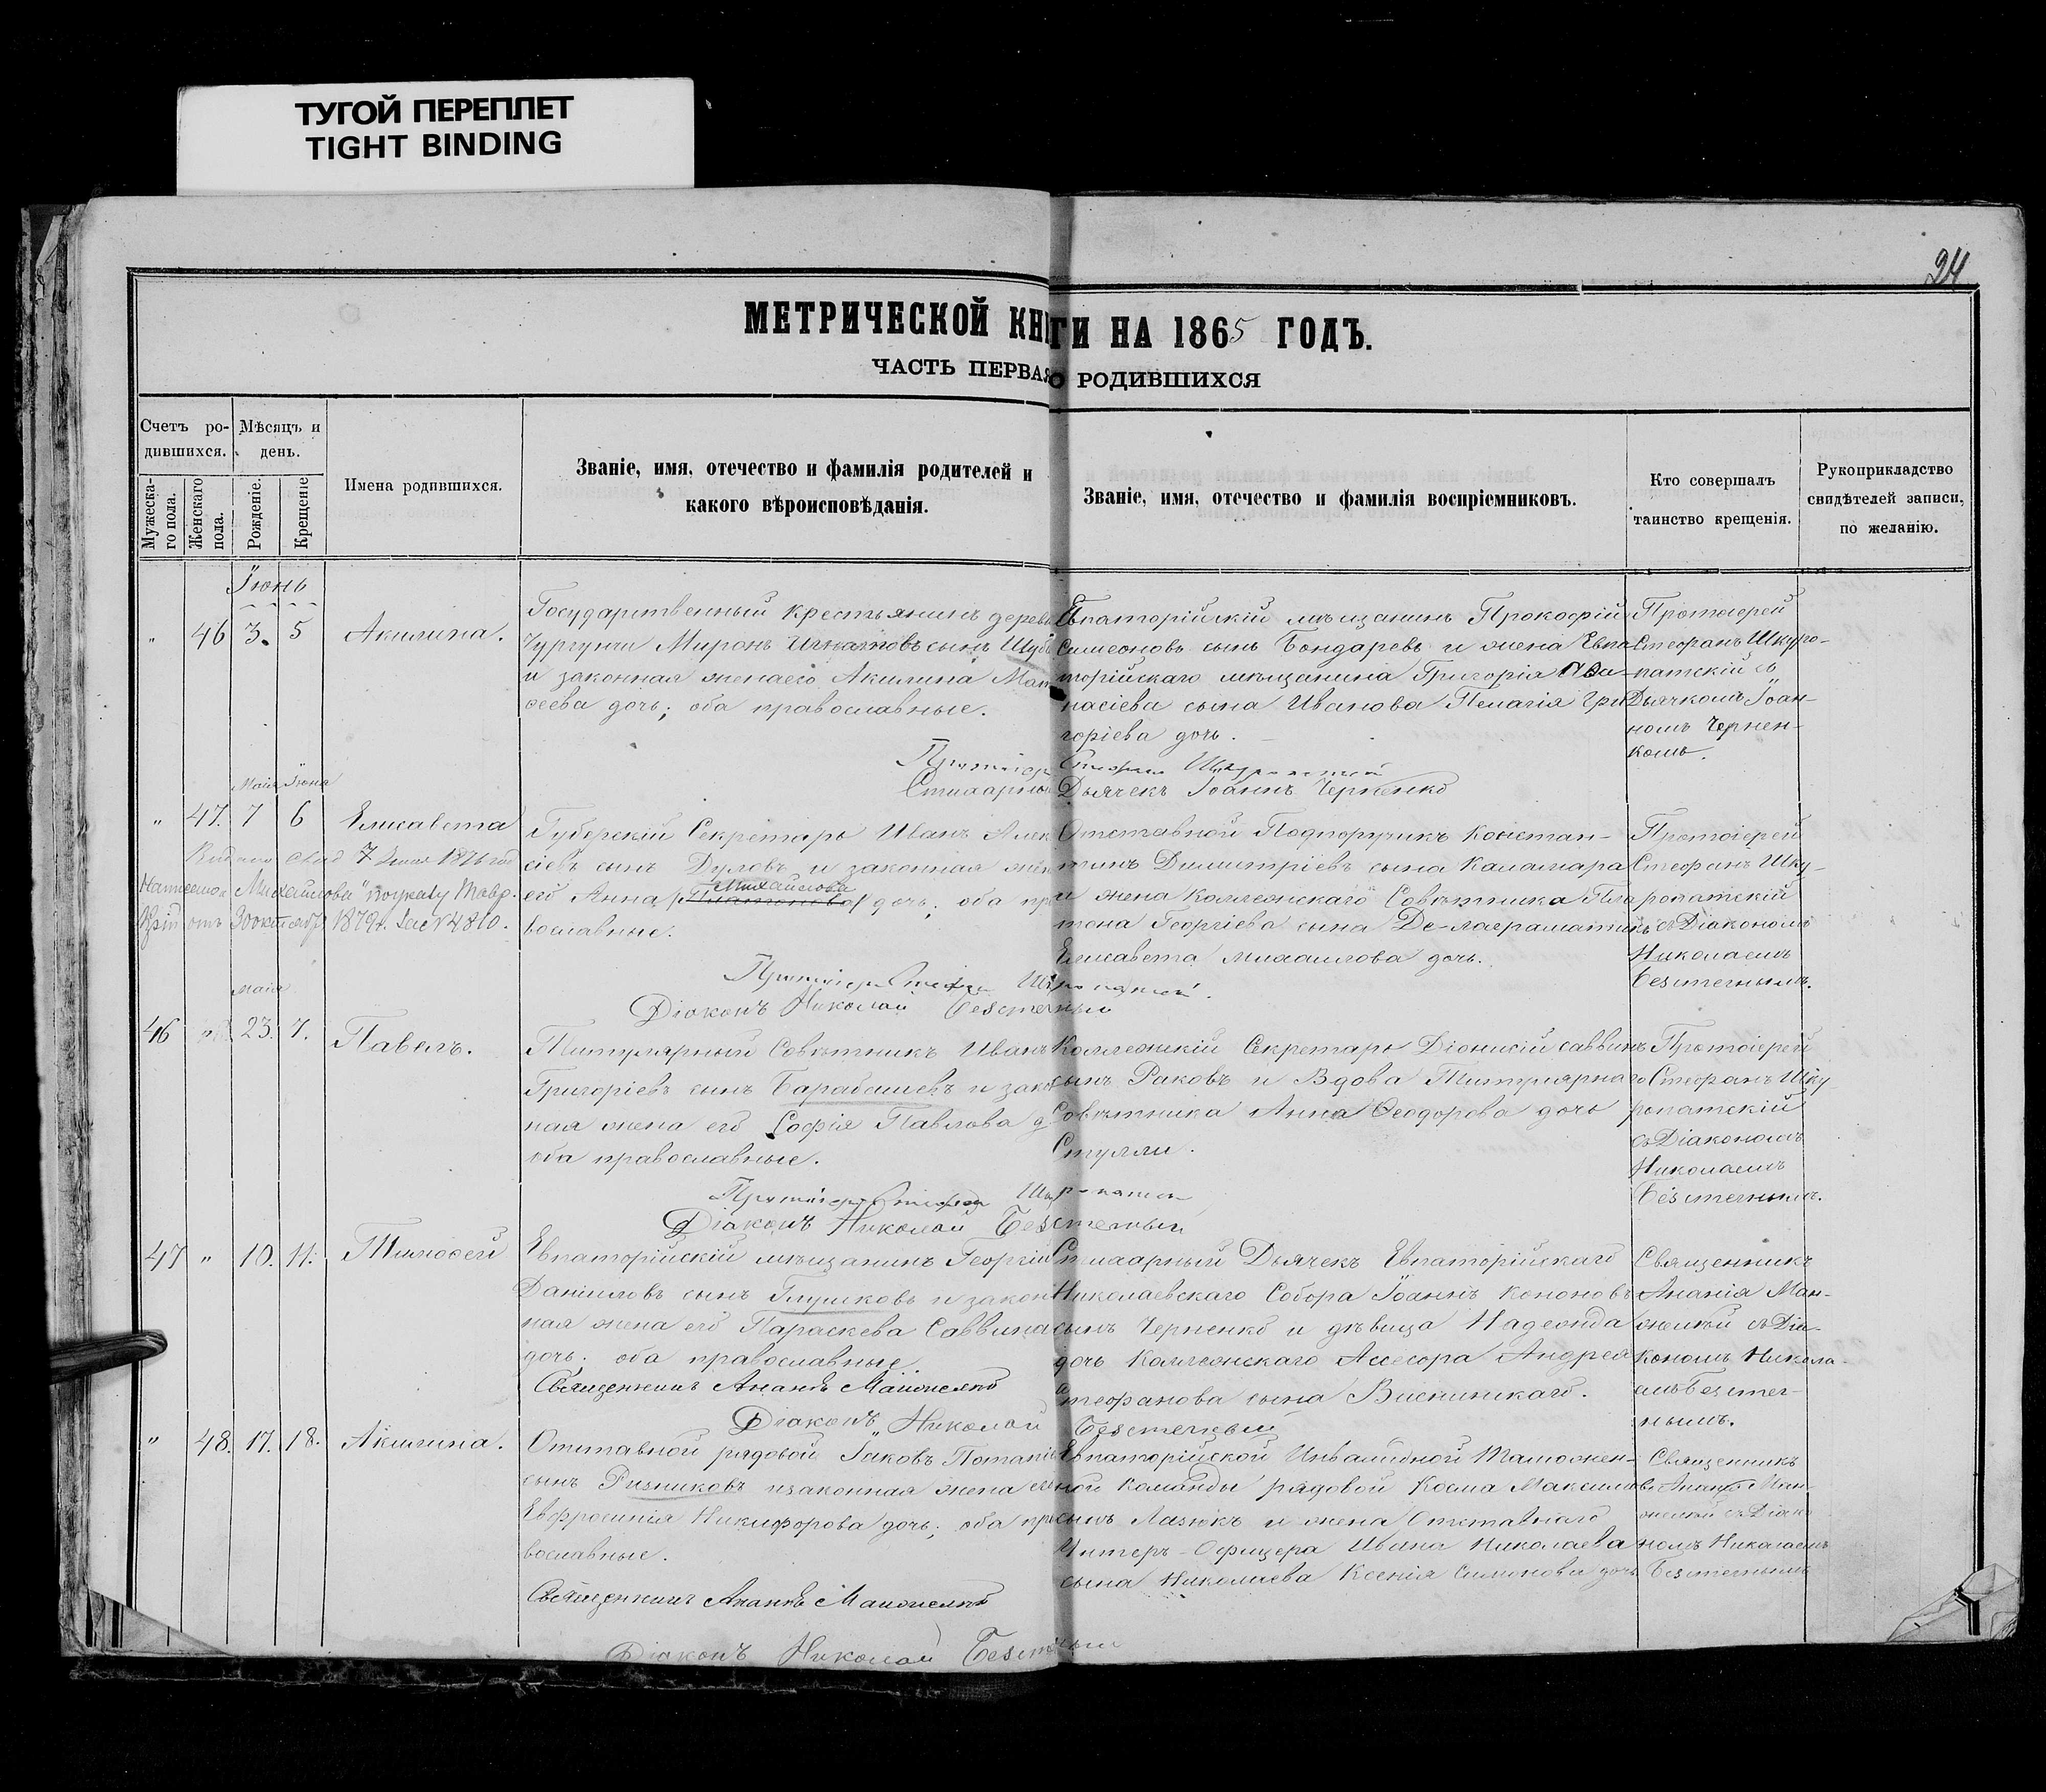 ТУГОЙ ПЕРЕПЛЕТ
TIGHT BINDING
24
МЕТРИЧЕСКОЙ КНИГИ НА 1865 ГОДЪ.
ЧАСТЬ ПЕРВАЯ О РОДИВШИХСЯ
Счетъ ро-
дившихся.
Мужеска-
го пола.
Женскаго
пола.
Мѣсяцъ и
день.
Рожденіе.
Крещеніе
Имена родившихся.
Званіе, имя, отечество и фамилія родителей и
какого вѣроисповѣданія.
Званіе, имя, отечество и фамилія воспріемниковъ.
Кто совершалъ
таинство крещенія.
Рукоприкладство
свидѣтелей записи,
по желанію.
Іюнь
" 46 3. 5 Акилина.
Государственный крестьянинъ дерев
Чургуни Миронъ Игнатовъ сынъ
и законная жена его Акилина Мат
сеева дочь; оба православные.
Евпаторійскій мѣщанинъ Прокофій
Симеоновъ сынъ Бондаревъ и жена Евпа
торійскаго мѣщанина Григорія Афа
насіева сына Иванова Пелагія Гри
горіева дочь.
Протоіерей
Стефанъ Шкуро-
патскій съ
Дьячкомъ Іоан-
номъ Чернен-
комъ.
Протоіер Стефанъ Шкуропатскій
Стихарный Дьячекъ Іоаннъ Черненко
Маія Іюня
" 47. 7 6 Елисавета
Губерскій Секретарь Иванъ Алек
сіевъ сынъ Дуловъ и законная жен
его Анна Михайлова дочь; оба пр
вославные.
Отставной Подпоручикъ Констан-
тинъ Димитріевъ сына Каламара
и жена Коллежскаго Совѣтника Пла
тона Георгіева сына Де-лаграматикъ
Елисавета Михаилова дочь.
Протоіерей
Стефанъ Шку-
ропатскій
съ Діакономъ
Николаемъ
Безстечнымъ.
Михайлова
3 октября 1879 г. № 4810.
Протоіерей Стефанъ Шкуропатскій.
Діаконъ Николай Безстечный
маія
46 " 23. 7. Павелъ.
Титулярный Совѣтникъ Иванъ
Григоріевъ сынъ Барабашевъ и зако
ная жена его Софія Павлова д
оба православные.
Коллежскій Секретарь Діонисій Саввинъ
сынъ Раковъ и Вдова Титулярнаго
Совѣтника Анна Феодорова дочь
Стулли.
Протоіерей
Стефанъ Шку
ропатскій
съ Діакономъ
Николаемъ
Безстечнымъ.
Протоіерей Стефанъ Шкуропатскій
Діаконъ Николай Безстечный
47 " 10. 11. Тимофей
Евпаторійскій мѣщанинъ Георгій
Даніиловъ сынъ Глушковъ и закон
ная жена его Параскева Саввина
дочь; оба православные.
Стихарный Дьячекъ Евпаторійскаго
Николаевскаго Собора Іоаннъ Кононовъ
сынъ Черненко и дѣвица Надежда
дочь Коллежскаго Ассесора Андрея
Стефанова сына
Священникъ
Ананія Ман-
желѣй съ Діа-
кономъ Никола-
емъ Безстеч-
нымъ.
Священникъ Ананія
Діаконъ Николай Безстечный
" 48. 17. 18. Акилина.
Отставной рядовой Іаковъ Потапіе
сынъ Ризниковъ и законная жена его
Евфросинія Никифорова дочь; оба пр
вославные.
Евпаторійской Инвалидной Таможен-
ной Команды рядовой Косма Максимовъ
сынъ Лазюкъ и жена Отставнаго
Унтеръ-Офицера Ивана Николаева
сына Николаева Ксенія Симонова дочь
Священникъ
Ананія Ман-
желѣй съ Діако
номъ Николаемъ
Безстечнымъ
Священникъ Ананія
Діаконъ Николай Безстечный